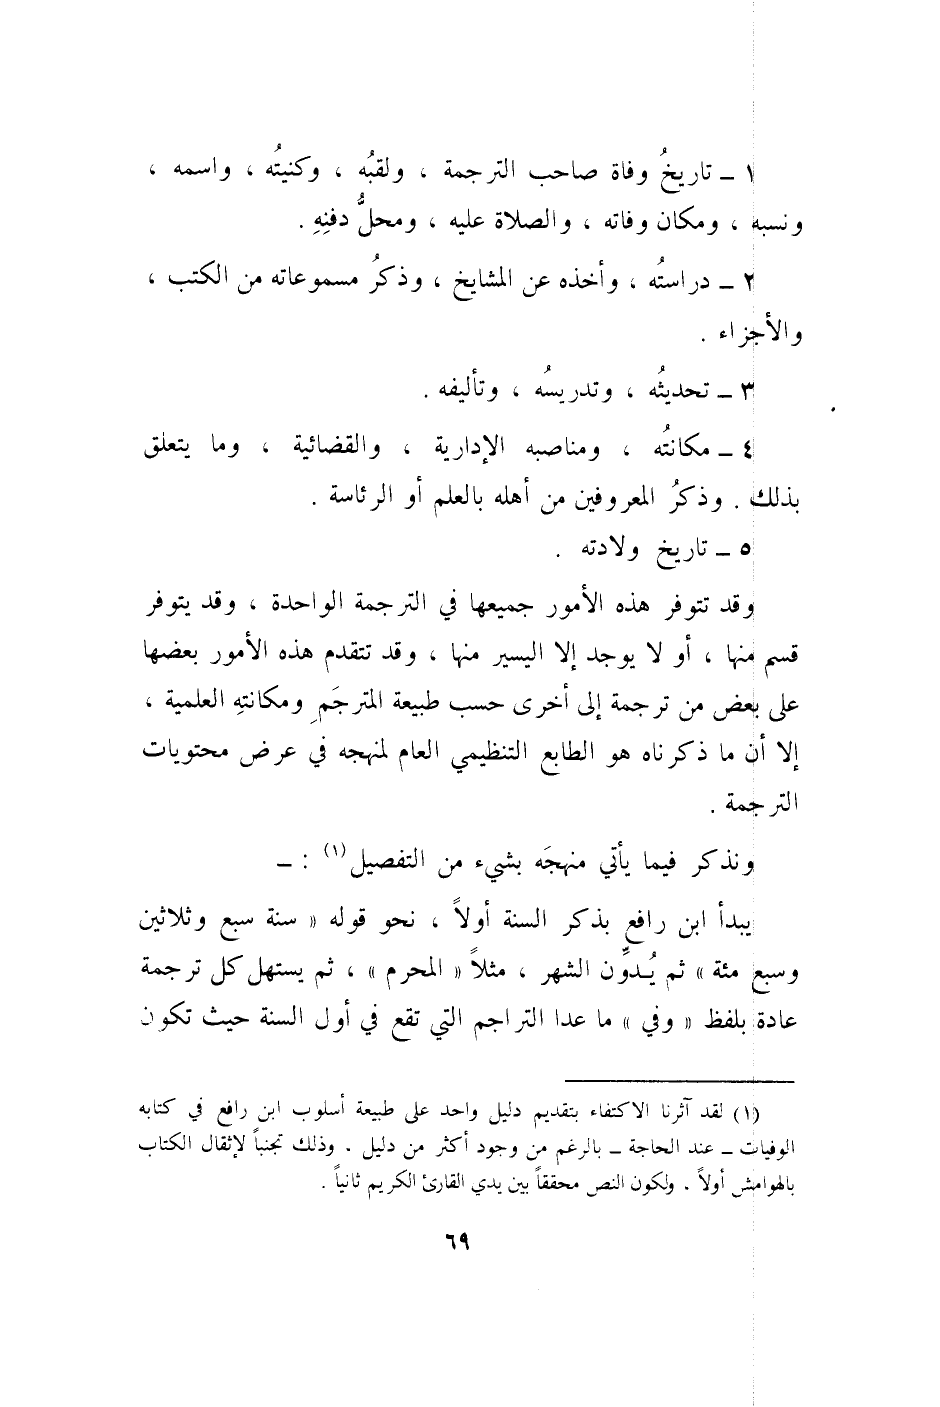 ١ ـ تاريخُ وفاة صاحب الترجمة ، ولقبُه ، وكنيتُه ، واسمه ،
ونسبه ، ومكان وفاته ، والصلاة عليه ، ومحلُّ دفنِهِ .
٢ ـ دراستُه ، وأخذه عن المشايخ ، وذكرُ مسموعاته من الكتب ،
والأجزاء .
٣ ـ تحديثُه ، وتدريسُه ، وتأليفه .
٤ ـ مكانتُه ، ومناصبه الإدارية ، والقضائية ، وما يتعلق
بذلك . وذكرُ المعروفين من أهله بالعلم أو الرئاسة .
٥ ـ تاريخ ولادته .
وقد تتوفر هذه الأمور جميعها في الترجمة الواحدة ، وقد يتوفر
قسم منها ، أو لا يوجد إلا اليسير منها ، وقد تتقدم هذه الأمور بعضها
على بعض من ترجمة إلى أخرى حسب طبيعة المترجَمِ ومكانتهِ العلمية ،
إلا أن ما ذكرناه هو الطابع التنظيمي العام لمنهجه في عرض محتويات
الترجمة .
ونذكر فيما يأتي منهجَه بشيء من التفصيل(١) : ـ
يبدأ ابن رافع بذكر السنة أولاً ، نحو قوله « سنة سبع وثلاثين
وسبع مئة » ثم يُدوِّن الشهر ، مثلاً « المحرم » ، ثم يستهل كل ترجمة
عادة بلفظ « وفي » ما عدا التراجم التي تقع في أول السنة حيث تكون
(١) لقد آثرنا الاكتفاء بتقديم دليل واحد على طبيعة أسلوب ابن رافع في كتابه
الوفيات ـ عند الحاجة ـ بالرغم من وجود أكثر من دليل . وذلك تجنباً لإثقال الكتاب
بالهوامش أولاً . ولكون النص محققاً بين يدي القارئ الكريم ثانياً .
٦٩